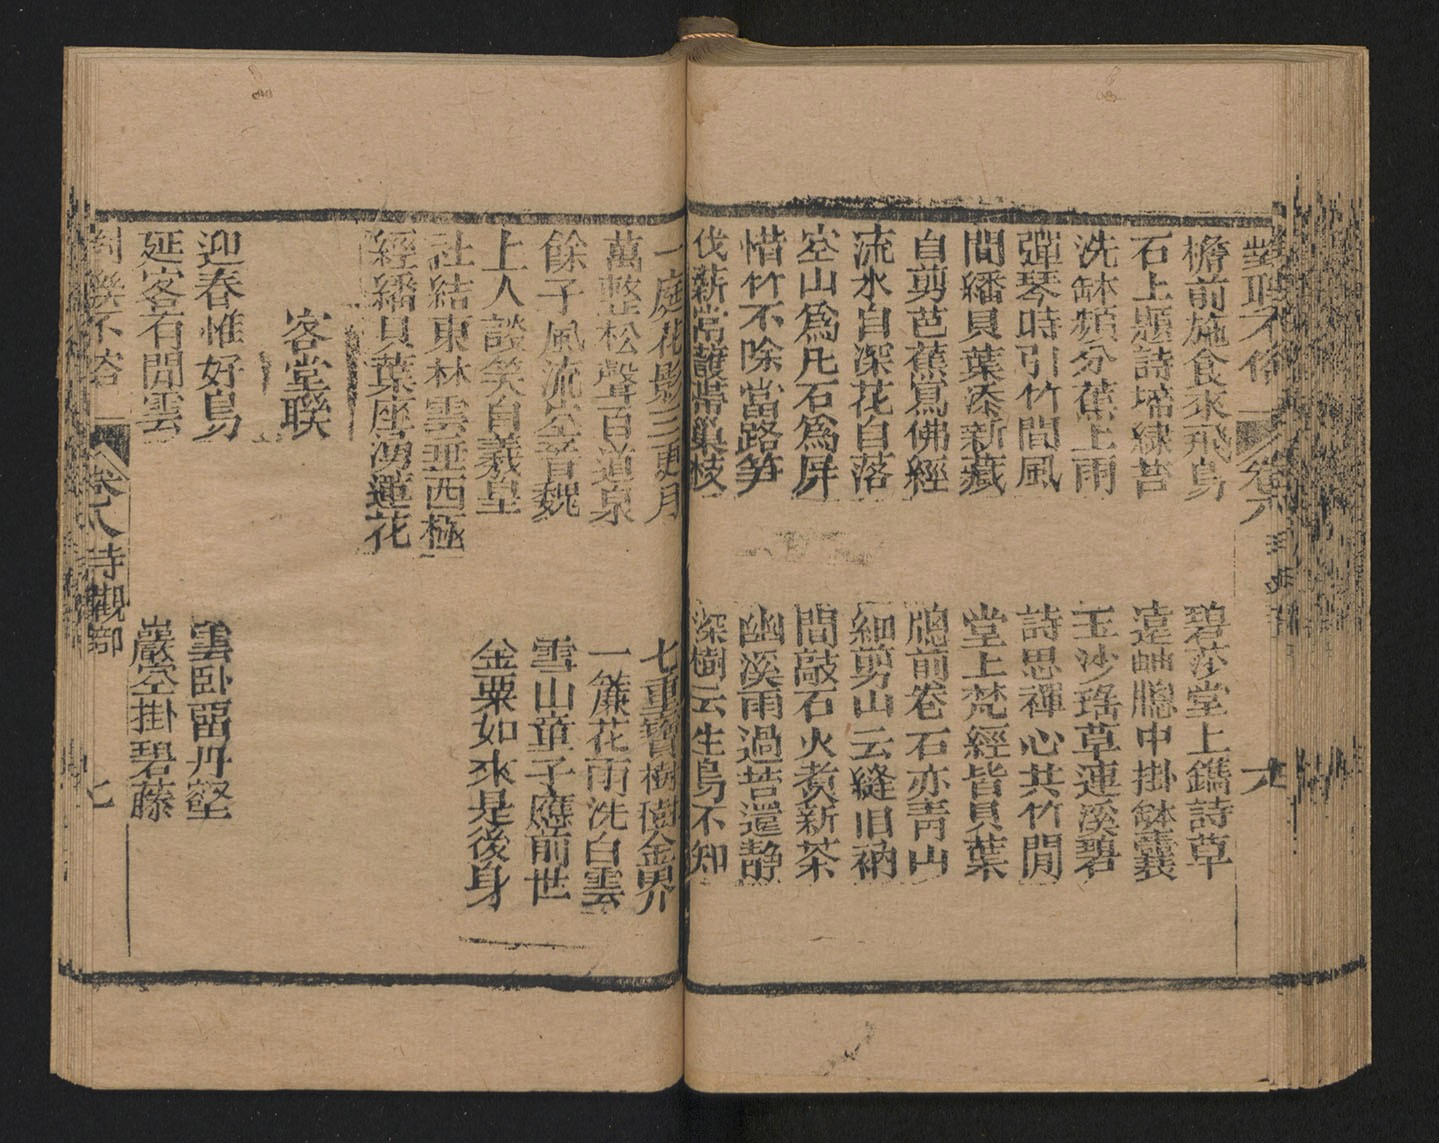 對聯不俗 卷八 六
檐前施食來飛鳥 碧莎堂上鐫詩草
石上題詩埽綠苔 遠岫牕中掛鉢囊
洗鉢頻分蕉上雨 玉沙瑤草連溪碧
彈琴時引竹間風 詩思禪心共竹閒
間繙貝葉添新藏 堂上梵經皆貝葉
自剪芭蕉寫佛經 牕前卷石亦青山
流水自深花自落 細剪山云縫旧衲
空山爲凡石爲屏 間敲石火煑新茶
惜竹不除當路笋 幽溪雨過苔還静
伐薪常護帶巢枝 深樹云生鳥不知
一庭花影三更月 七重寳樹樹金界
萬壑松聲百道泉 一簾花雨洗白雲
餘子風流空晉魏 雪山童子應前世
上人談笑自羲皇 金粟如來是後身
社結東林雲亜西極
經繙貝葉座湧蓮花
客堂聯
迎春惟好鳥 雲卧畱丹壑
延客有閒雲 巖空掛碧藤
對聯不俗 卷八寺觀部 七